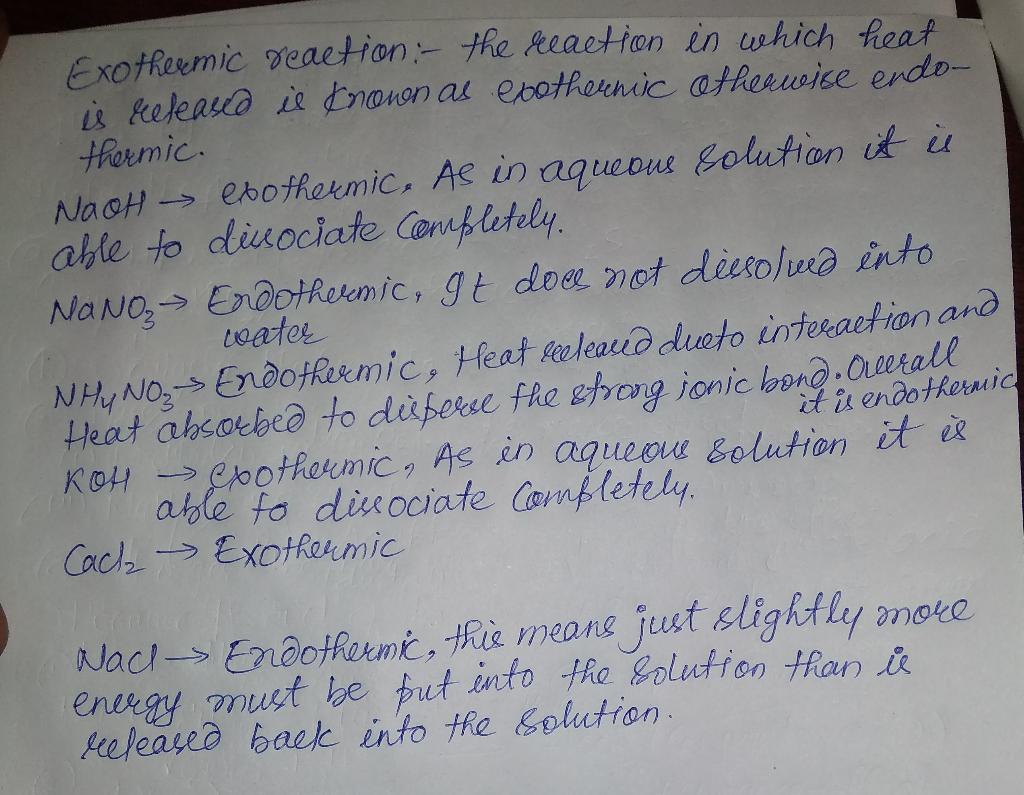 Exothermic reaction:- the reaction in which heat
is released is known as exothermic otherwise endo-
thermic.
NaOH → exothermic, As in aqueous solution it is
able to dissociate completely.
NaNO3 → Endothermic, It does not dissolved into
water
NH4NO3 → Endothermic, Heat released due to interaction and
Heat absorbed to disperse the strong ionic bond. Overall
it is endothermic
KOH → exothermic, As in aqueous solution it is
able to dissociate completely.
Cacl2 → Exothermic
Nacl → Endothermic, this means just slightly more
energy must be put into the solution than is
released back into the solution.